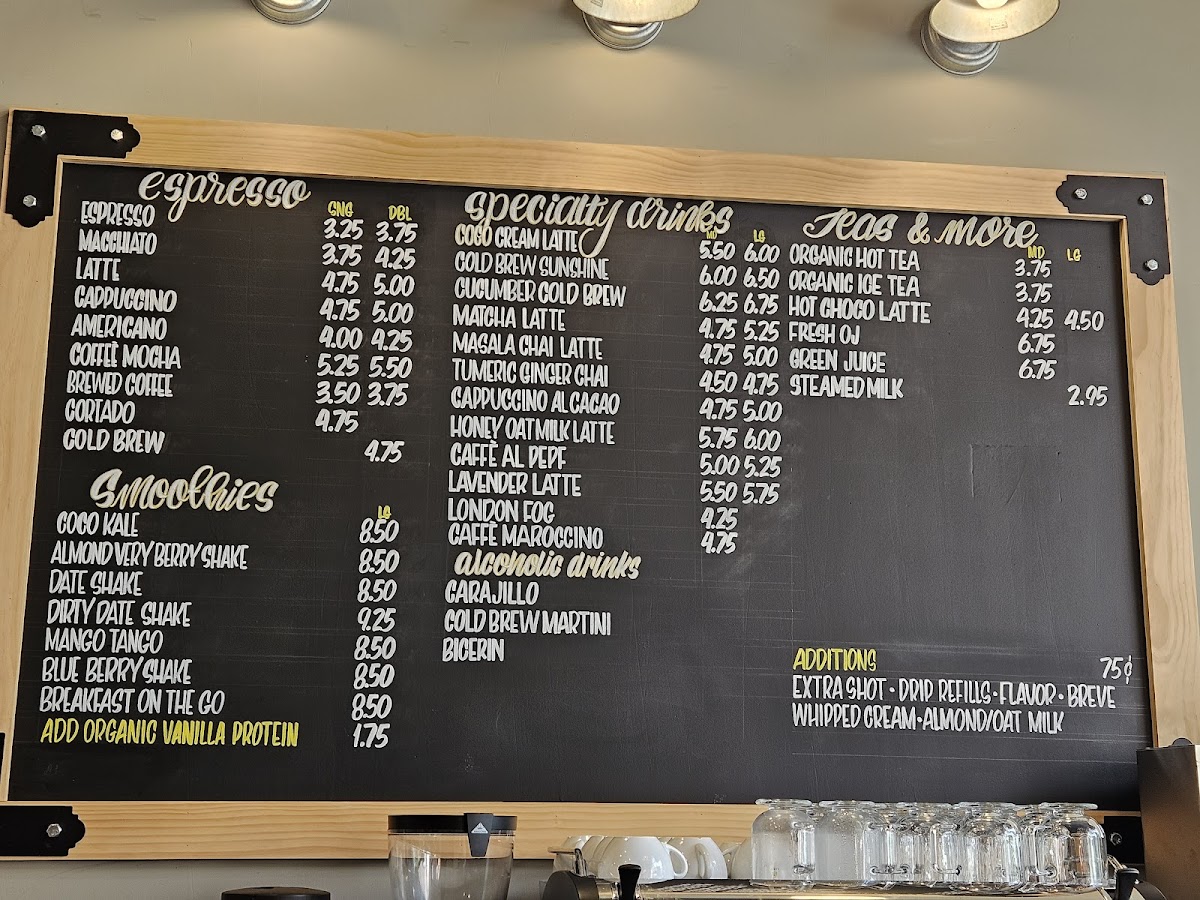 espresso
SNG DBL
ESPRESSO 3.25 3.75
MACCHIATO 3.75 4.25
LATTE 4.75 5.00
CAPPUCCINO 4.75 5.00
AMERICANO 4.00 4.25
COFFEÈ MOCHA 5.25 5.50
BREWED COFFEE 3.50 3.75
CORTADO 4.75
COLD BREW 4.75
Smoothies
LG
COCO KALE 8.50
ALMOND VERY BERRY SHAKE 8.50
DATE SHAKE 8.50
DIRTY DATE SHAKE 9.25
MANGO TANGO 8.50
BLUE BERRY SHAKE 8.50
BREAKFAST ON THE GO 8.50
ADD ORGANIC VANILLA PROTEIN 1.75
specialty drinks
MD LG
COCO CREAM LATTE 5.50 6.00
COLD BREW SUNSHINE 6.00 6.50
CUCUMBER COLD BREW 6.25 6.75
MATCHA LATTE 4.75 5.25
MASALA CHAI LATTE 4.75 5.00
TUMERIC GINGER CHAI 4.50 4.75
CAPPUCCINO AL CACAO 4.75 5.00
HONEY OATMILK LATTE 5.75 6.00
CAFFÈ AL PEPE 5.00 5.25
LAVENDER LATTE 5.50 5.75
LONDON FOG 4.25
CAFFÈ MAROCCINO 4.75
alcoholic drinks
CARAJILLO
COLD BREW MARTINI
BICERIN
Teas & more
MD LG
ORGANIC HOT TEA 3.75
ORGANIC ICE TEA 3.75
HOT CHOCO LATTE 4.25 4.50
FRESH OJ 6.75
GREEN JUICE 6.75
STEAMED MILK 2.95
ADDITIONS 75¢
EXTRA SHOT • DRIP REFILLS • FLAVOR • BREVE
WHIPPED CREAM • ALMOND/OAT MILK